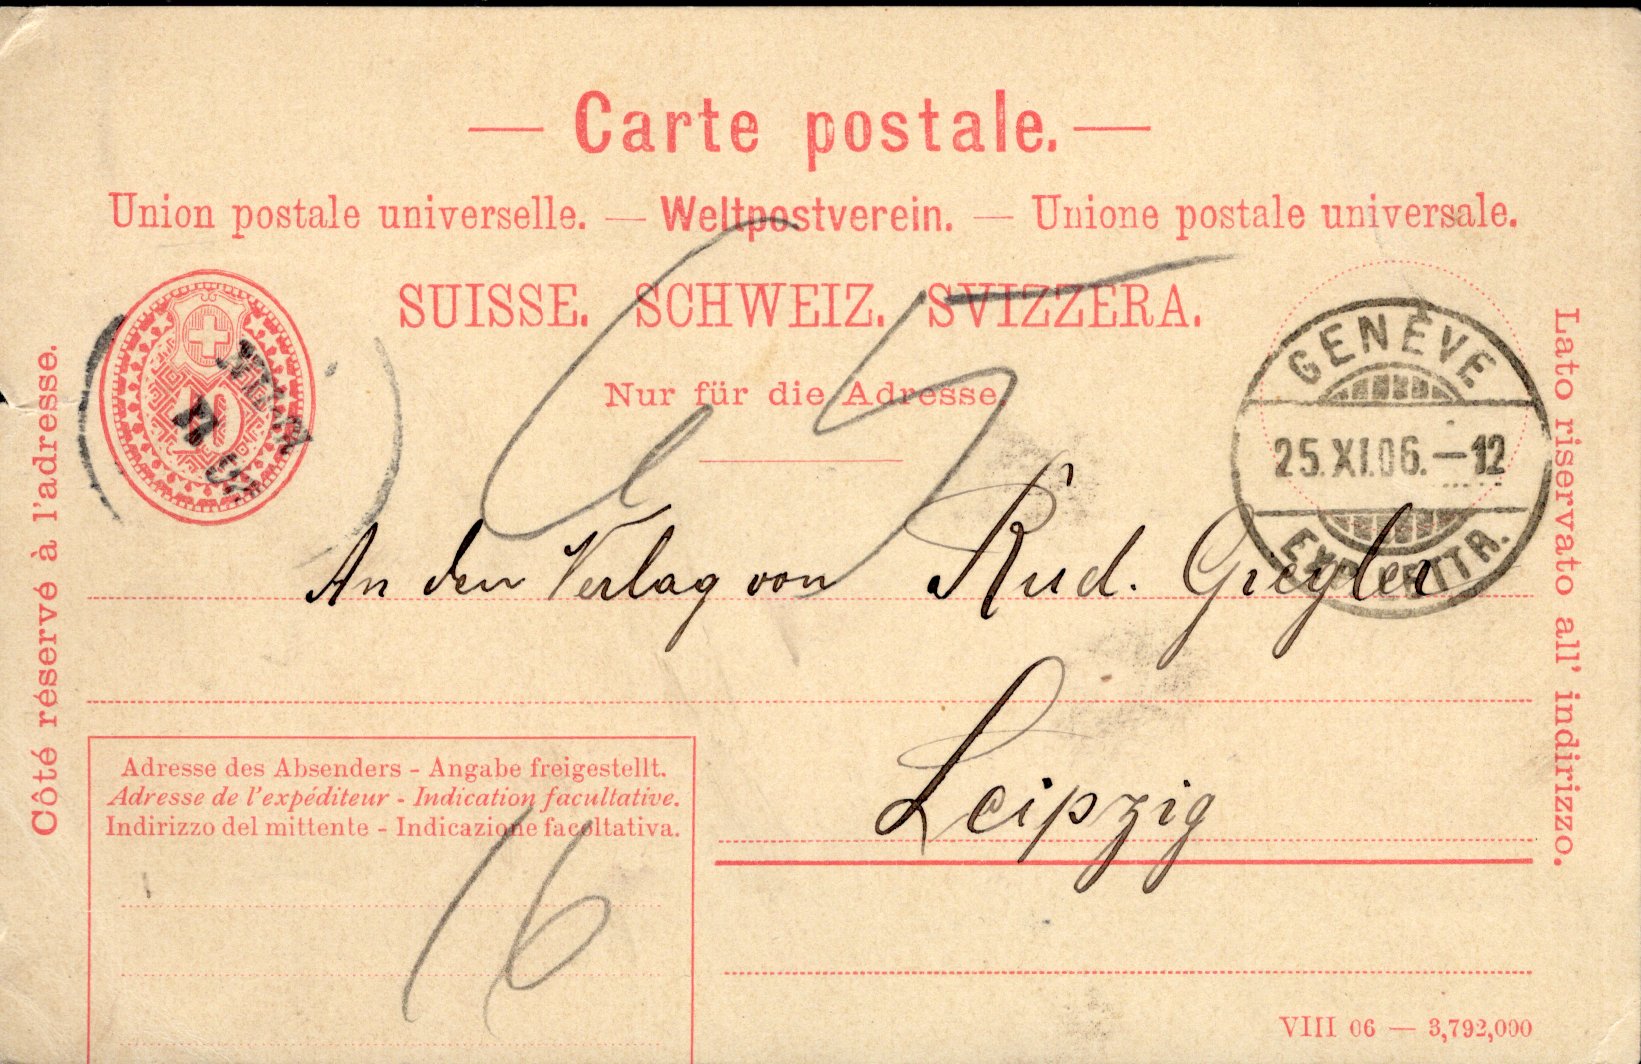 — Carte postale. —
Union postale universelle. — Weltpostverein. — Unione postale universale.
SUISSE. SCHWEIZ. SVIZZERA.
Nur für die Adresse.
10
GENÈVE
25.XI.06.—12
EXP. LETTR.
65
An den Verlag von Rud. Giegler
Leipzig
Côté réservé à l'adresse.
Lato riservato all' indirizzo.
Adresse des Absenders - Angabe freigestellt.
Adresse de l'expéditeur - Indication facultative.
Indirizzo del mittente - Indicazione facoltativa.
16
VIII 06 — 3,792,000